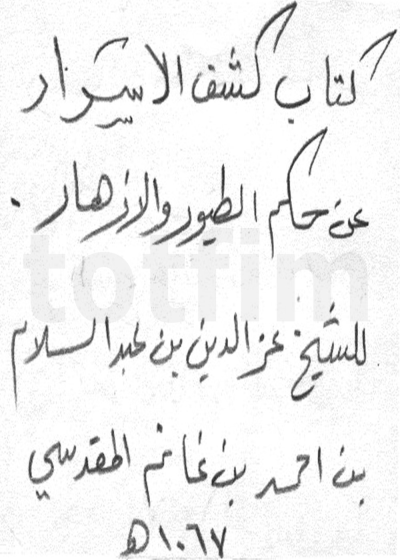 كتاب كشف الاسرار
عن حكم الطيور والازهار .
totfim
للشيخ عز الدين بن عبد السلام
بن احمد بن غانم المقدسي
١٠٦٧ ه